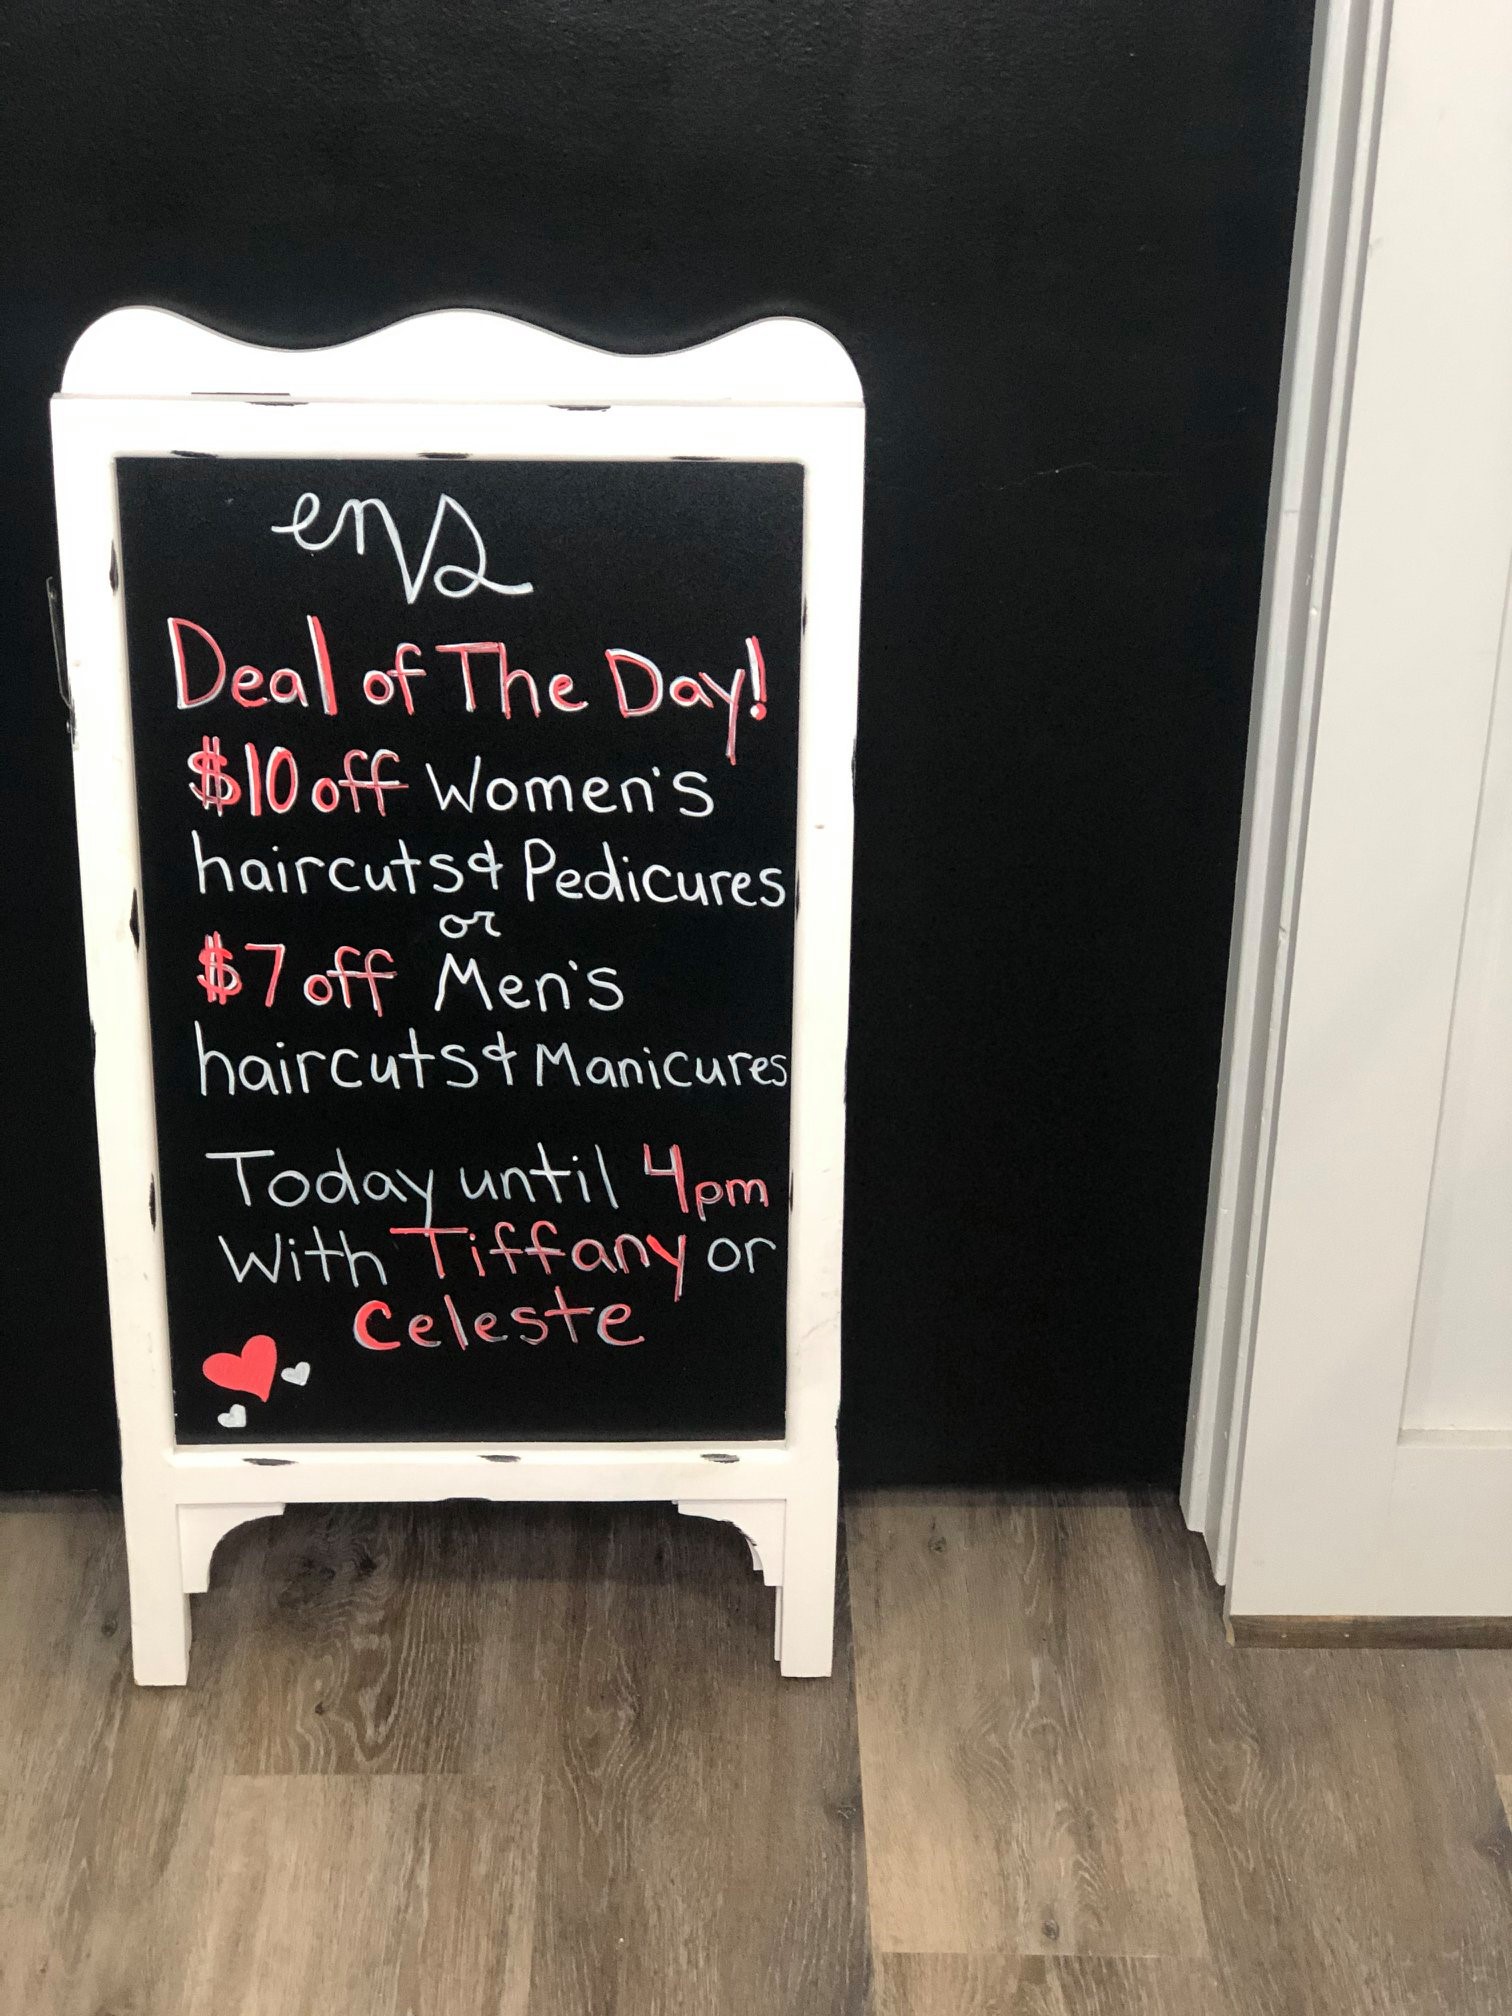 envs
Deal of The Day!
$10 off Women's
haircuts & Pedicures
or
$7 off Men's
haircuts & Manicures
Today until 4pm
With Tiffany or
Celeste